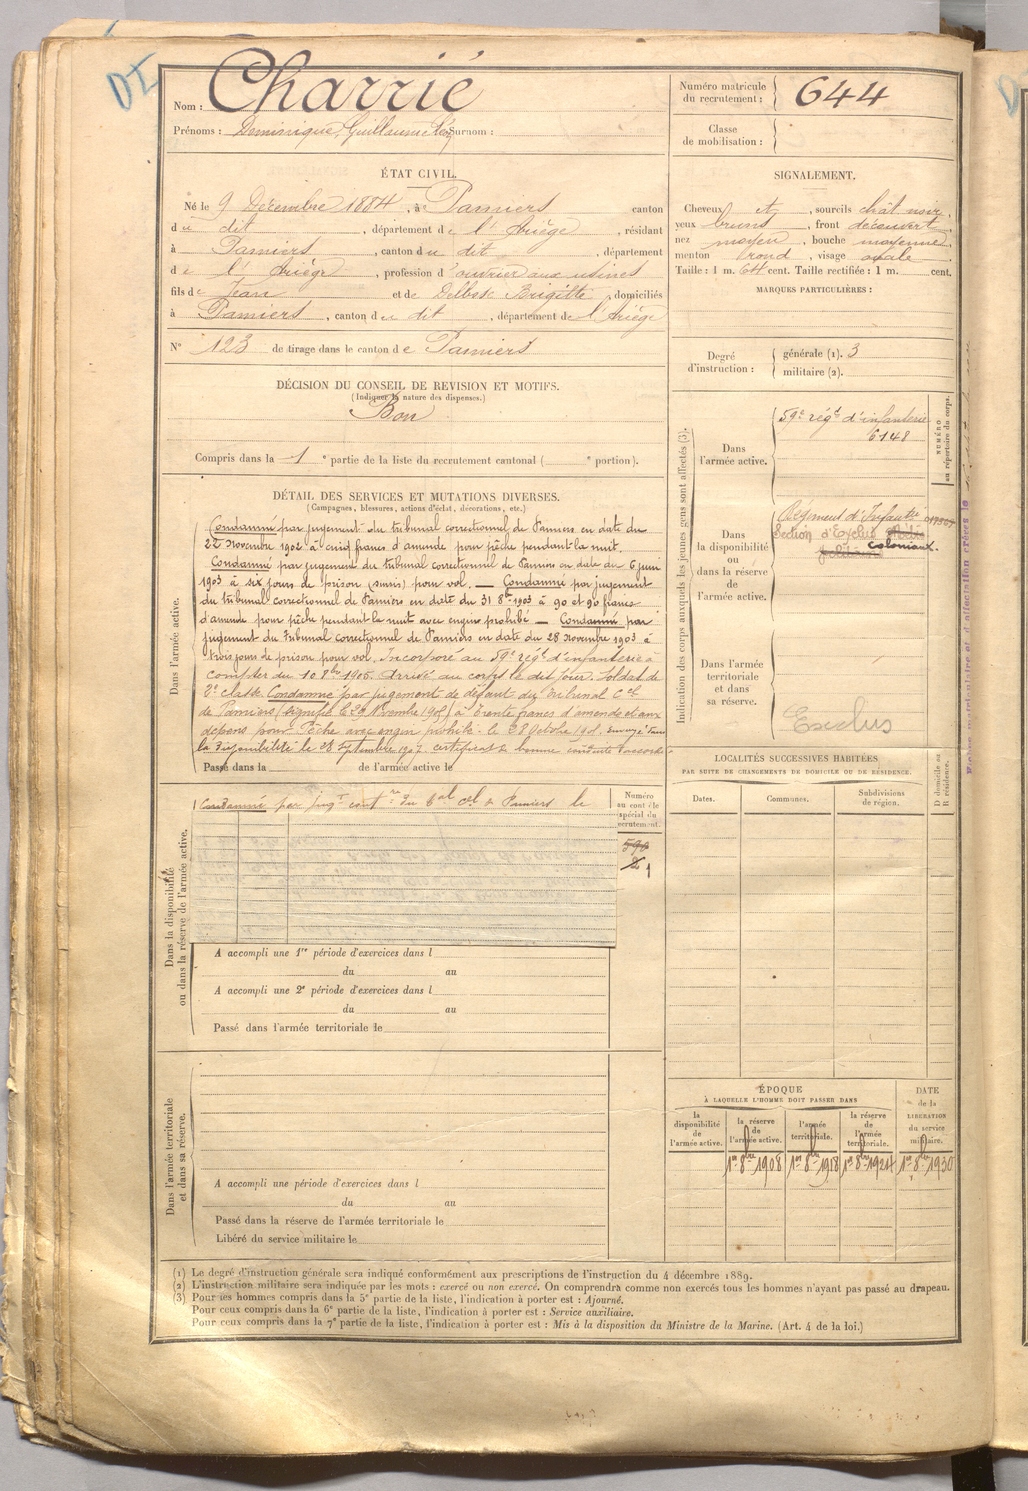 DI
Nom : Charrié
Prénoms : Dominique, Guillaume, Surnom :
Numéro matricule du recrutement : 644
Classe de mobilisation :
ÉTAT CIVIL.
Né le 9 Décembre 1884, à Pamiers canton
du dit, département de l'Ariège, résidant
à Pamiers, canton du dit, département
de l'Ariège, profession d'ouvrier aux usines
fils de Jean et de Delbosc Brigitte, domiciliés
à Pamiers, canton du dit, département de l'Ariège
N° 123 de tirage dans le canton de Pamiers
SIGNALEMENT.
Cheveux et, sourcils chât noir,
yeux bruns, front découvert,
nez moyen, bouche moyenne,
menton rond, visage ovale
Taille : 1 m. 64 cent. Taille rectifiée : 1 m. cent.
MARQUES PARTICULIÈRES :
Degré d'instruction : générale (1). 3
militaire (2).
DÉCISION DU CONSEIL DE REVISION ET MOTIFS.
(Indiquer la nature des dispenses.)
Bon
Compris dans la 1e partie de la liste du recrutement cantonal ( e portion).
DÉTAIL DES SERVICES ET MUTATIONS DIVERSES.
(Campagnes, blessures, actions d'éclat, décorations, etc.)
Dans l'armée active.
Condamné par jugement du tribunal correctionnel de Pamiers en date du
22 Novembre 1902 à cinq francs d'amende pour pêche pendant la nuit.
Condamné par jugement du tribunal correctionnel de Pamiers en date du 6 juin
1903 à six jours de prison (sursis) pour vol. — Condamné par jugement
du tribunal correctionnel de Pamiers en date du 31 8bre 1903 à 90 et 90 francs
d'amende pour pêche pendant la nuit avec engin prohibé — Condamné par
jugement du Tribunal correctionnel de Pamiers en date du 28 Novembre 1903 à
trois jours de prison pour vol. Incorporé au 59e régt d'infanterie à
compter du 10 8bre 1905. Arrivé au corps le dit jour. Soldat de
2e classe. Condamné par jugement de défaut du Tribunal Cel
de Pamiers (signifié le 29 Novembre 1905) à trente francs d'amende et aux
dépens pour Pêche avec engin prohibé le 28 Octobre 1905. Envoyé dans
la Disponibilité le 28 Septembre 1907. certificat de bonne conduite accordé
Passé dans la de l'armée active le
Indication des corps auxquels les jeunes gens sont affectés (3).
Dans l'armée active.
59e régt d'infanterie
6148
NUMÉRO au répertoire du corps.
Dans la disponibilité ou dans la réserve de l'armée active.
Régiment d'Infanterie
Section d'Exclus
coloniaux.
Dans l'armée territoriale et dans sa réserve.
Exclus
Dans la disponibilité ou dans la réserve de l'armée active.
Condamné par jugt contre du bal cel de Pamiers le
Numéro au contrôle spécial du recrutement.
590
1
A accompli une 1re période d'exercices dans l
du au
A accompli une 2e période d'exercices dans l
du au
Passé dans l'armée territoriale le
LOCALITÉS SUCCESSIVES HABITÉES
PAR SUITE DE CHANGEMENTS DE DOMICILE OU DE RÉSIDENCE.
Dates. Communes. Subdivisions de région. D domicile ou R résidence.
Dans l'armée territoriale et dans sa réserve.
A accompli une période d'exercices dans l
du au
Passé dans la réserve de l'armée territoriale le
Libéré du service militaire le
ÉPOQUE
À LAQUELLE L'HOMME DOIT PASSER DANS
la disponibilité de l'armée active.
la réserve de l'armée active.
l'armée territoriale.
la réserve de l'armée territoriale.
DATE de la LIBÉRATION du service militaire.
1er 8bre 1908 1er 8bre 1918 1er 8bre 1924 1er 8bre 1930
(1) Le degré d'instruction générale sera indiqué conformément aux prescriptions de l'instruction du 4 décembre 1889.
(2) L'instruction militaire sera indiquée par les mots : exercé ou non exercé. On comprendra comme non exercés tous les hommes n'ayant pas passé au drapeau.
(3) Pour les hommes compris dans la 5e partie de la liste, l'indication à porter est : Ajourné.
Pour ceux compris dans la 6e partie de la liste, l'indication à porter est : Service auxiliaire.
Pour ceux compris dans la 7e partie de la liste, l'indication à porter est : Mis à la disposition du Ministre de la Marine. (Art. 4 de la loi.)